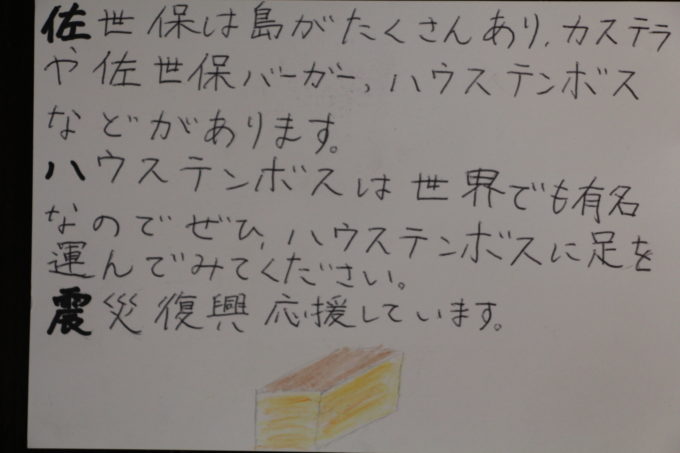 佐世保は島がたくさんあり、カステラ
や佐世保バーガー、ハウステンボス
などがあります。
ハウステンボスは世界でも有名
なのでぜひ、ハウステンボスに足を
運んでみてください。
震災復興応援しています。